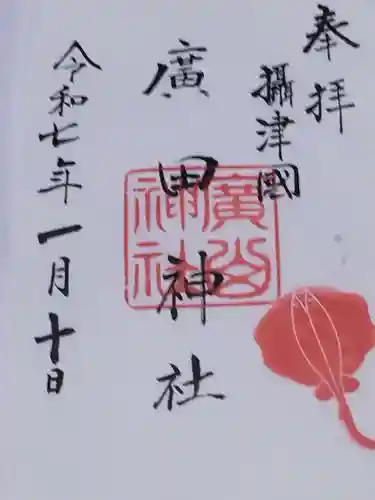 奉拝
攝津國
廣田神社
令和七年一月十日